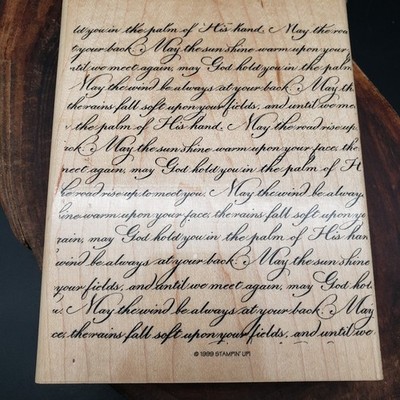 ld you in the palm of His hand. May the roa
t your back. May the sun shine warm upon your
until we meet again, may God hold you in the palm
May the wind be always at your back. May th
the rains fall soft upon your fields, and until we me
the palm of His hand. May the road rise up
ack. May the sun shine warm upon your face, the
meet again, may God hold you in the palm of H
he road rise up to meet you. May the wind be alway
hine warm upon your face, the rains fall soft upon yo
again, may God hold you in the palm of His han
wind be always at your back. May the sun shine
your fields, and until we meet again, may God hol
u. May the wind be always at your back. May
ce, the rains fall soft upon your fields, and until we
© 1999 STAMPIN' UP!